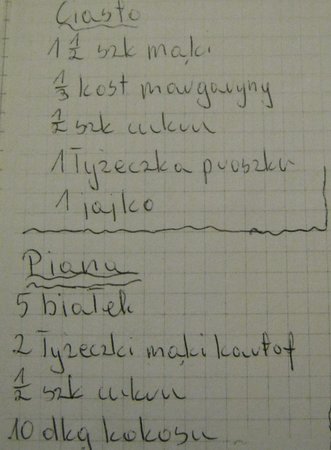 Ciasto
1 1/2 szk mąki
1/3 kost margaryny
1/2 szk cukru
1 łyżeczka proszku
1 jajko
Piana
5 białek
2 łyżeczki mąki kartof
1/2 szk cukru
10 dkg kokosu